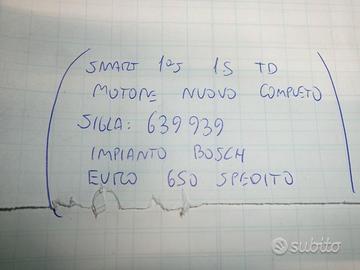 SMART 1.5 TD
MOTORE NUOVO COMPLETO
SIGLA: 639939
IMPIANTO BOSCH
EURO 650 SPEDITO
subito